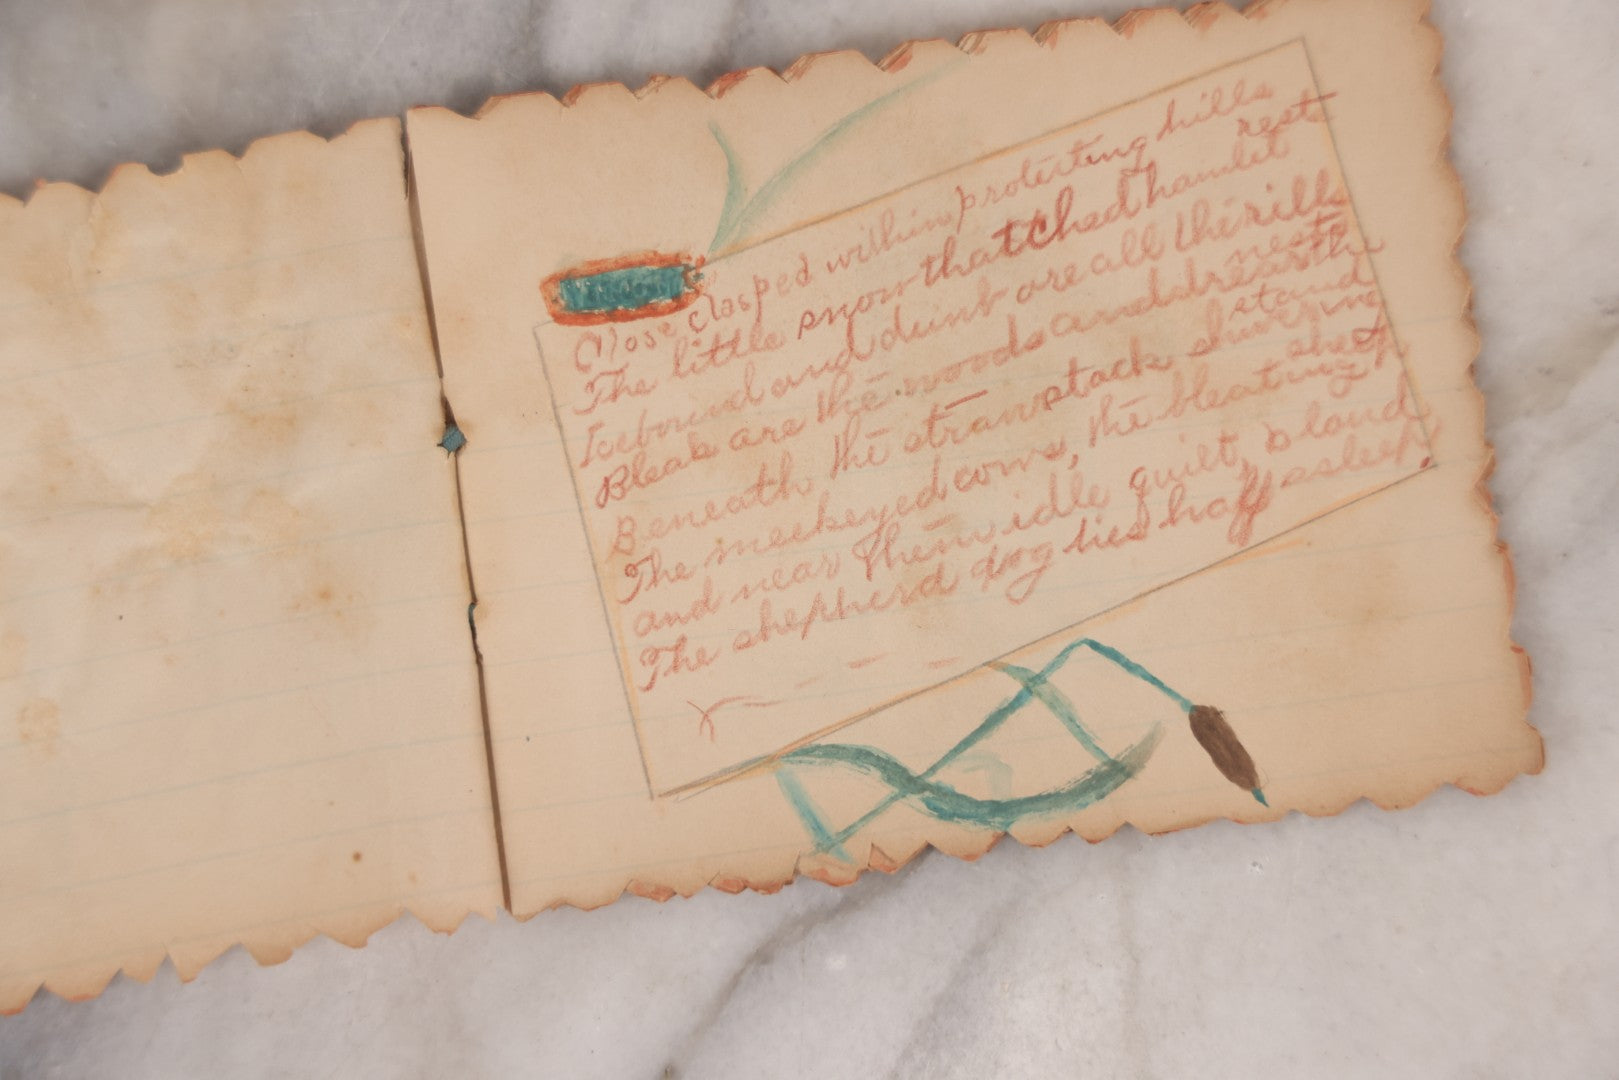 Close clasped within protecting hills
The little snow thatched hamlet rest
Icebound and dumb are all the rills
Bleak are the woods and drear the nests
Beneath the strawstack shivering stand
The meekeyed cows, the bleating sheep
and near them idle quiet, bland
The shepherd dog lies half asleep